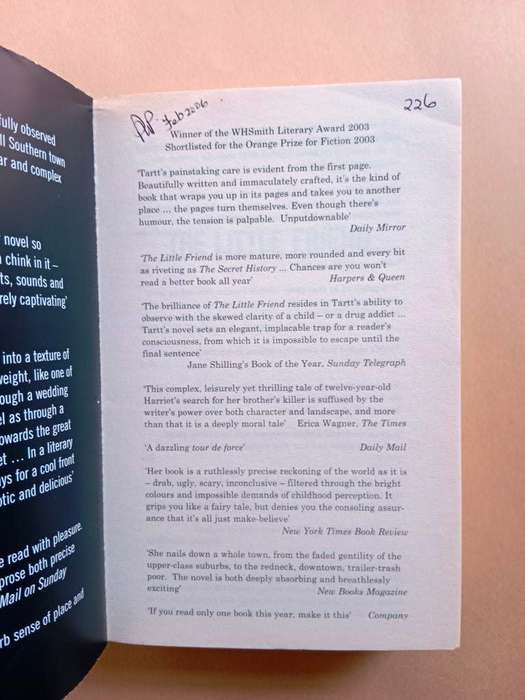 fully observed
ll Southern town
ar and complex
novel so
chink in it –
ts, sounds and
rely captivating'
into a texture of
weight, like one of
ough a wedding
el as through a
owards the great
et ... In a literary
ys for a cool front
otic and delicious'
e read with pleasure.
prose both precise
Mail on Sunday
rb sense of place and
Feb 2006
226
Winner of the WHSmith Literary Award 2003
Shortlisted for the Orange Prize for Fiction 2003
'Tartt's painstaking care is evident from the first page.
Beautifully written and immaculately crafted, it's the kind of
book that wraps you up in its pages and takes you to another
place ... the pages turn themselves. Even though there's
humour, the tension is palpable. Unputdownable'
Daily Mirror
'The Little Friend is more mature, more rounded and every bit
as riveting as The Secret History ... Chances are you won't
read a better book all year' Harpers & Queen
'The brilliance of The Little Friend resides in Tartt's ability to
observe with the skewed clarity of a child – or a drug addict ...
Tartt's novel sets an elegant, implacable trap for a reader's
consciousness, from which it is impossible to escape until the
final sentence'
Jane Shilling's Book of the Year, Sunday Telegraph
'This complex, leisurely yet thrilling tale of twelve-year-old
Harriet's search for her brother's killer is suffused by the
writer's power over both character and landscape, and more
than that it is a deeply moral tale' Erica Wagner, The Times
'A dazzling tour de force' Daily Mail
'Her book is a ruthlessly precise reckoning of the world as it is
– drab, ugly, scary, inconclusive – filtered through the bright
colours and impossible demands of childhood perception. It
grips you like a fairy tale, but denies you the consoling assur-
ance that it's all just make-believe'
New York Times Book Review
'She nails down a whole town, from the faded gentility of the
upper-class suburbs, to the redneck, downtown, trailer-trash
poor. The novel is both deeply absorbing and breathlessly
exciting' New Books Magazine
'If you read only one book this year, make it this' Company